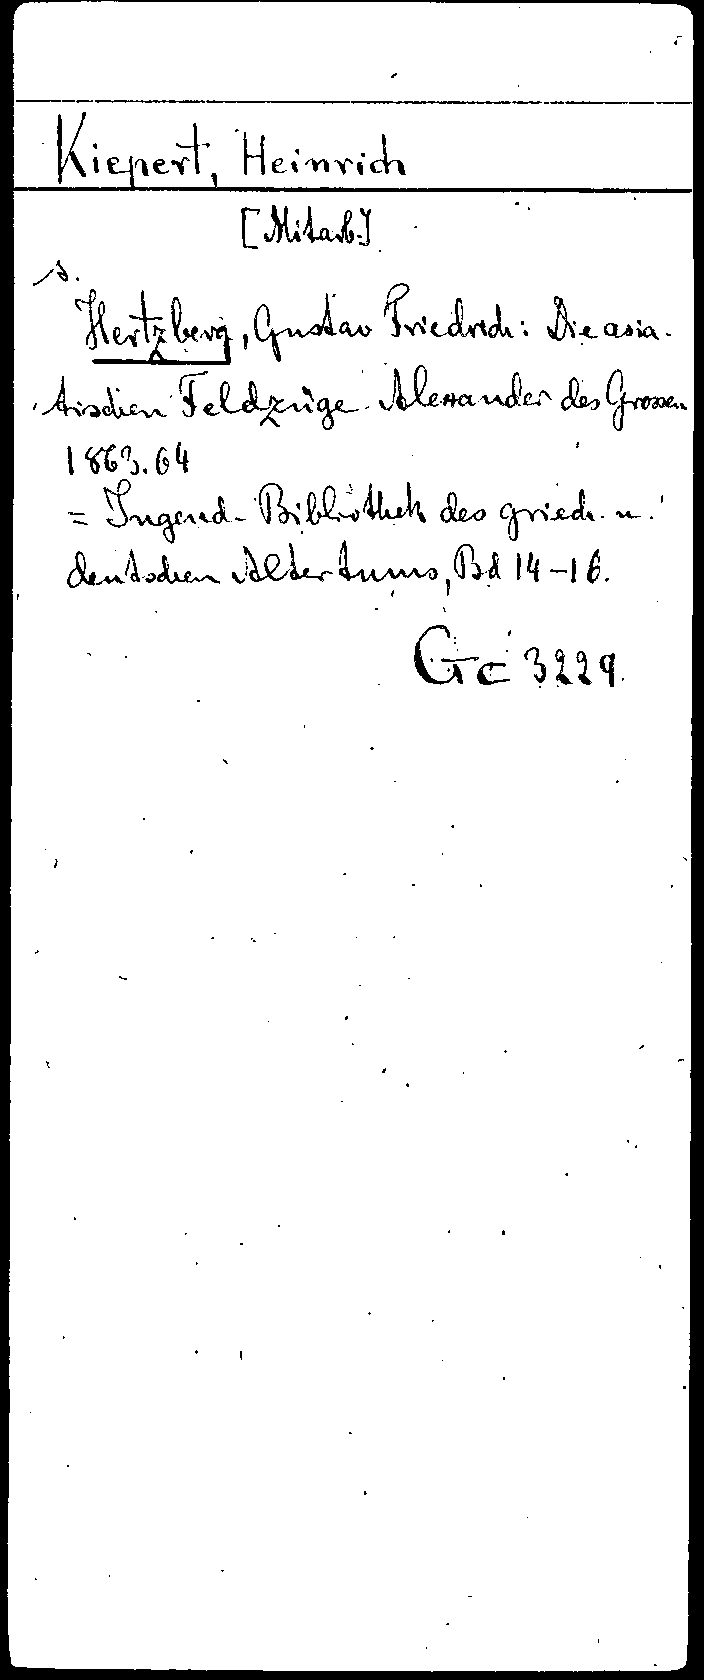 Kiepert, Heinrich
[Mitarb.]
s.
Hertzberg, Gustav Friedrich: Die asia-
tischen Feldzüge Alexander des Grossen
1863.64
= Jugend-Bibliothek des griech. u.
deutschen Altertums, Bd 14-16.
Gc 3229